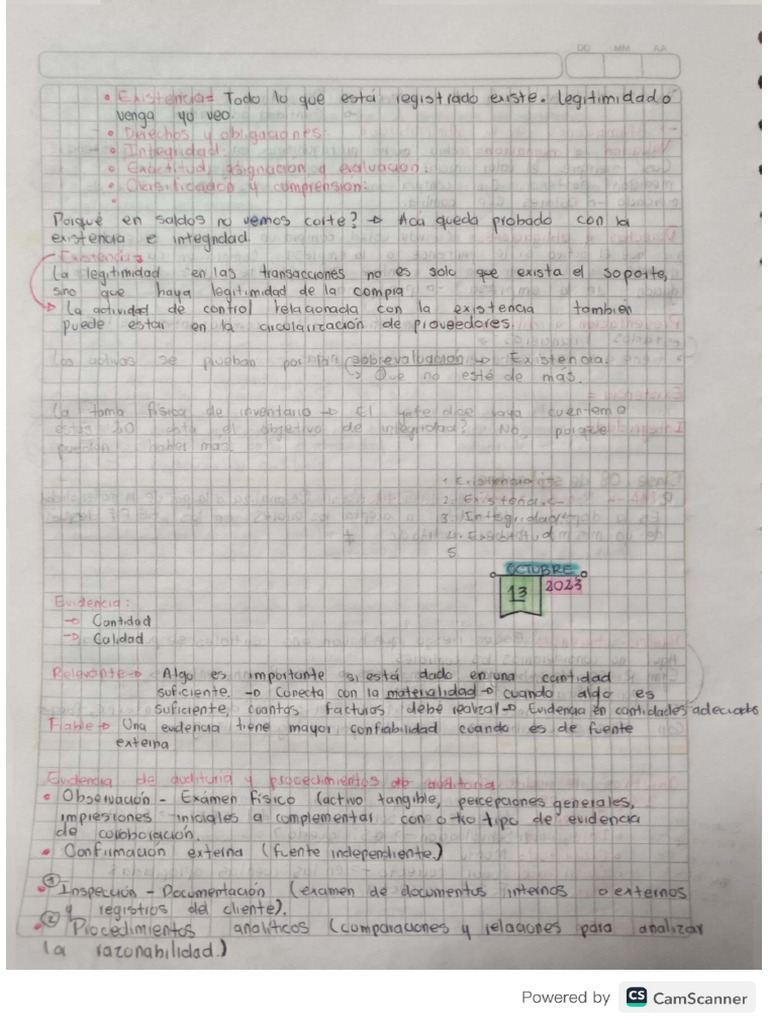 DD MM AA
• Existencia= Todo lo que está registrado existe. legitimidad o
venga yo veo.
• Derechos y obligaciones.
• Integridad.
• Exactitud, asignación y evaluación.
• Clasificación y comprensión.
•
Porqué en saldos no vemos corte? → Acá queda probado con la
existencia e integridad.
Existencia:
La legitimidad en las transacciones no es solo que exista el soporte,
sino que haya legitimidad de la compra
La actividad de control relacionada con la existencia también
puede estar en la circularización de proveedores.
Los activos se prueban por sobrevaluación → Existencia.
→ Que no esté de más.
La toma física de inventario → El jefe dice vaya cuenteme
estas 20 está el objetivo de integridad? No, porque
pueden haber más.
1. Existencia
2. Existencia
3. Integridad
4. Exactitud
5
OCTUBRE
13 2023
Evidencia:
→ Cantidad
→ Calidad
Relevante → Algo es importante si está dado en una cantidad
suficiente. → Conecta con la materialidad → cuando algo es
suficiente, cuantas facturas debe realizar → Evidencia en cantidades adecuadas
Fiable → Una evidencia tiene mayor confiabilidad cuando es de fuente
externa
Evidencia de auditoria y procedimientos de auditoria
• Observación - Exámen físico (activo tangible, percepciones generales,
impresiones iniciales a complementar con otro tipo de evidencia
de corroboración.
• Confirmación externa (fuente independiente.)
• ① Inspección - Documentación (examen de documentos internos o externos
y registros del cliente).
• ② Procedimientos analíticos (comparaciones y relaciones para analizar
la razonabilidad.)
Powered by CS CamScanner